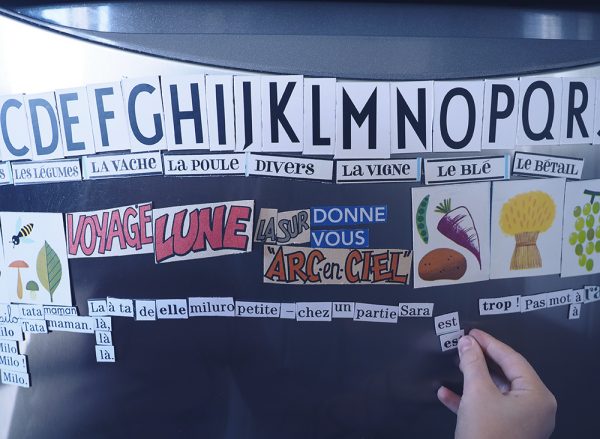 C D E F G H I J K L M N O P Q R
LES LÉGUMES LA VACHE LA POULE DIVERS LA VIGNE LE BLÉ LE BÉTAIL
VOYAGE LUNE LA SUR DONNE
VOUS
"ARC-en-CIEL"
tata maman Là à ta de elle miluro petite – chez un partie Sara est trop ! Pas mot à
Milo Tata maman là est à
Milo là
Milo !
Milo.